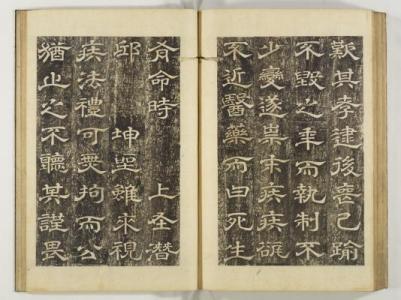 歎其孝逮後喪已踰
不毀之年而執制不
少變遂本疾疾
不近醫藥而曰死生
有命時 上在潛
邸 坤聖雖來視
疾法禮可無拘而公
猶止之不聽其謹畏